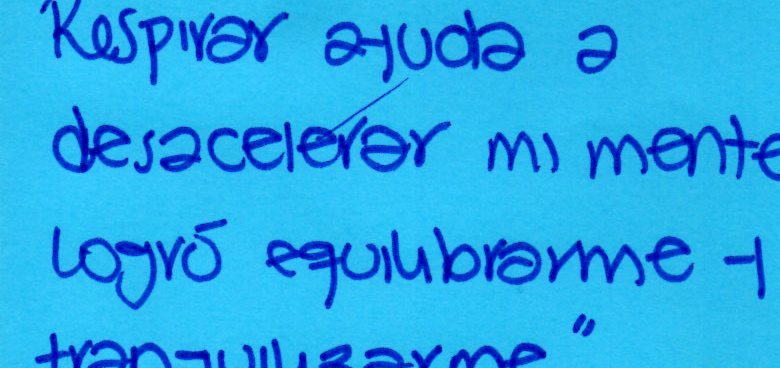 Respirar ayuda a
desacelerar mi mente
logró equilibrarme y
tranquilizarme"